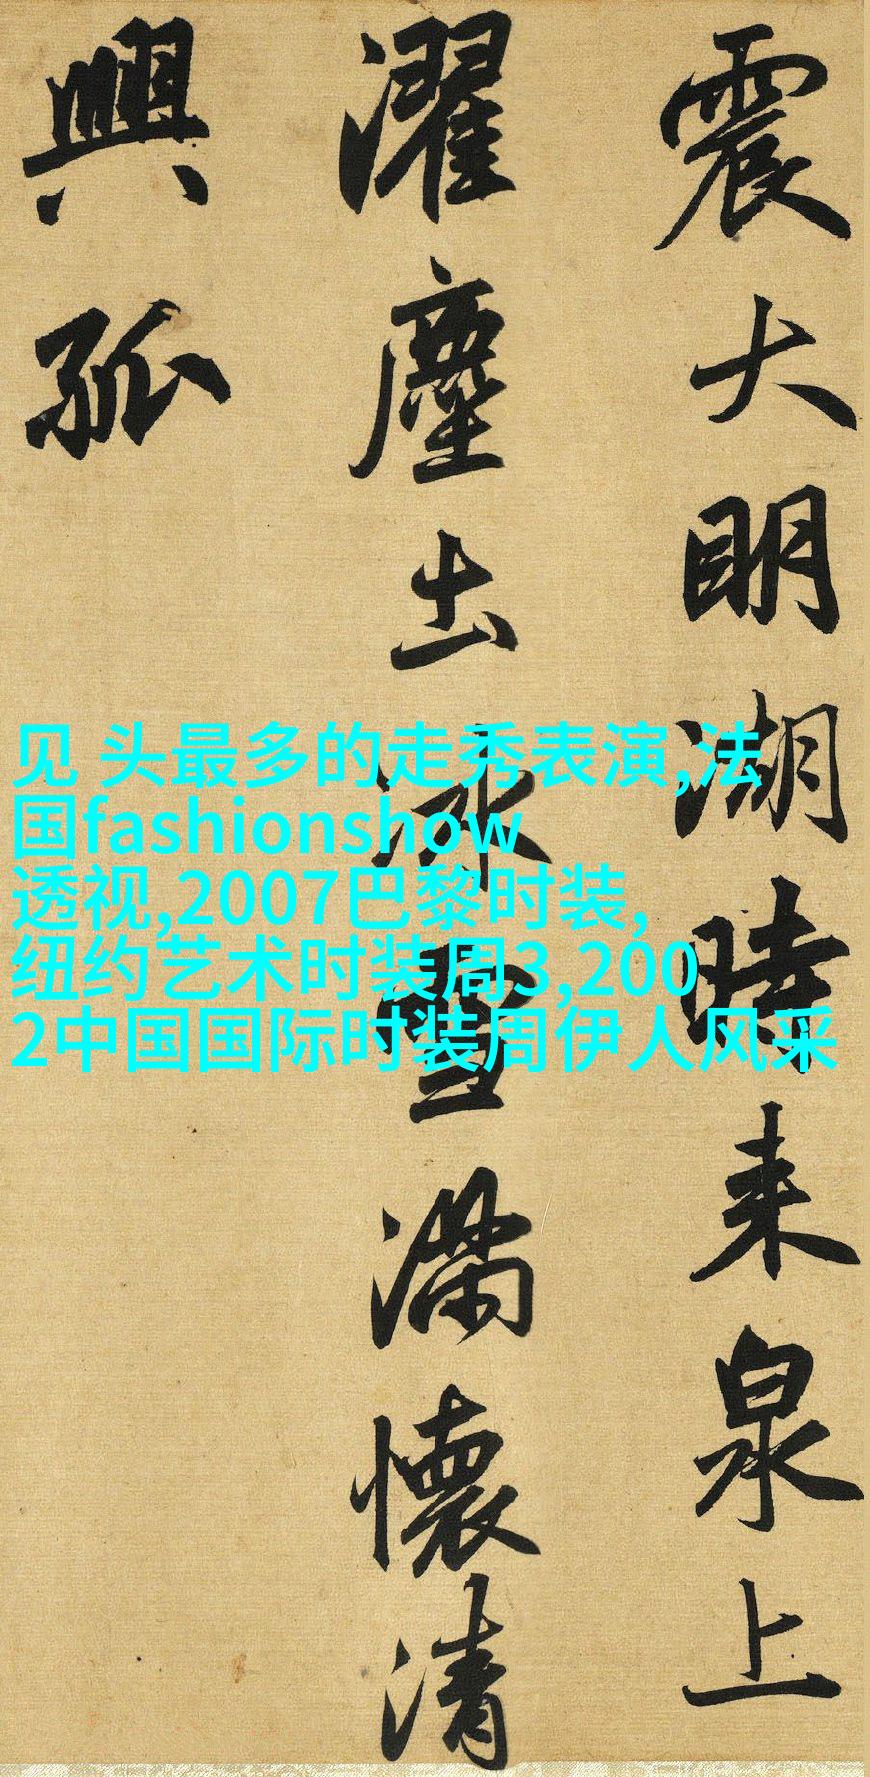 震大明湖時来泉上
濯塵出冰雪滿懷清
興孤
见 头最多的走秀表演,法
国fashionshow
透视,2007巴黎时装,
纽约艺术时装周3,200
2中国国际时装周伊人风采